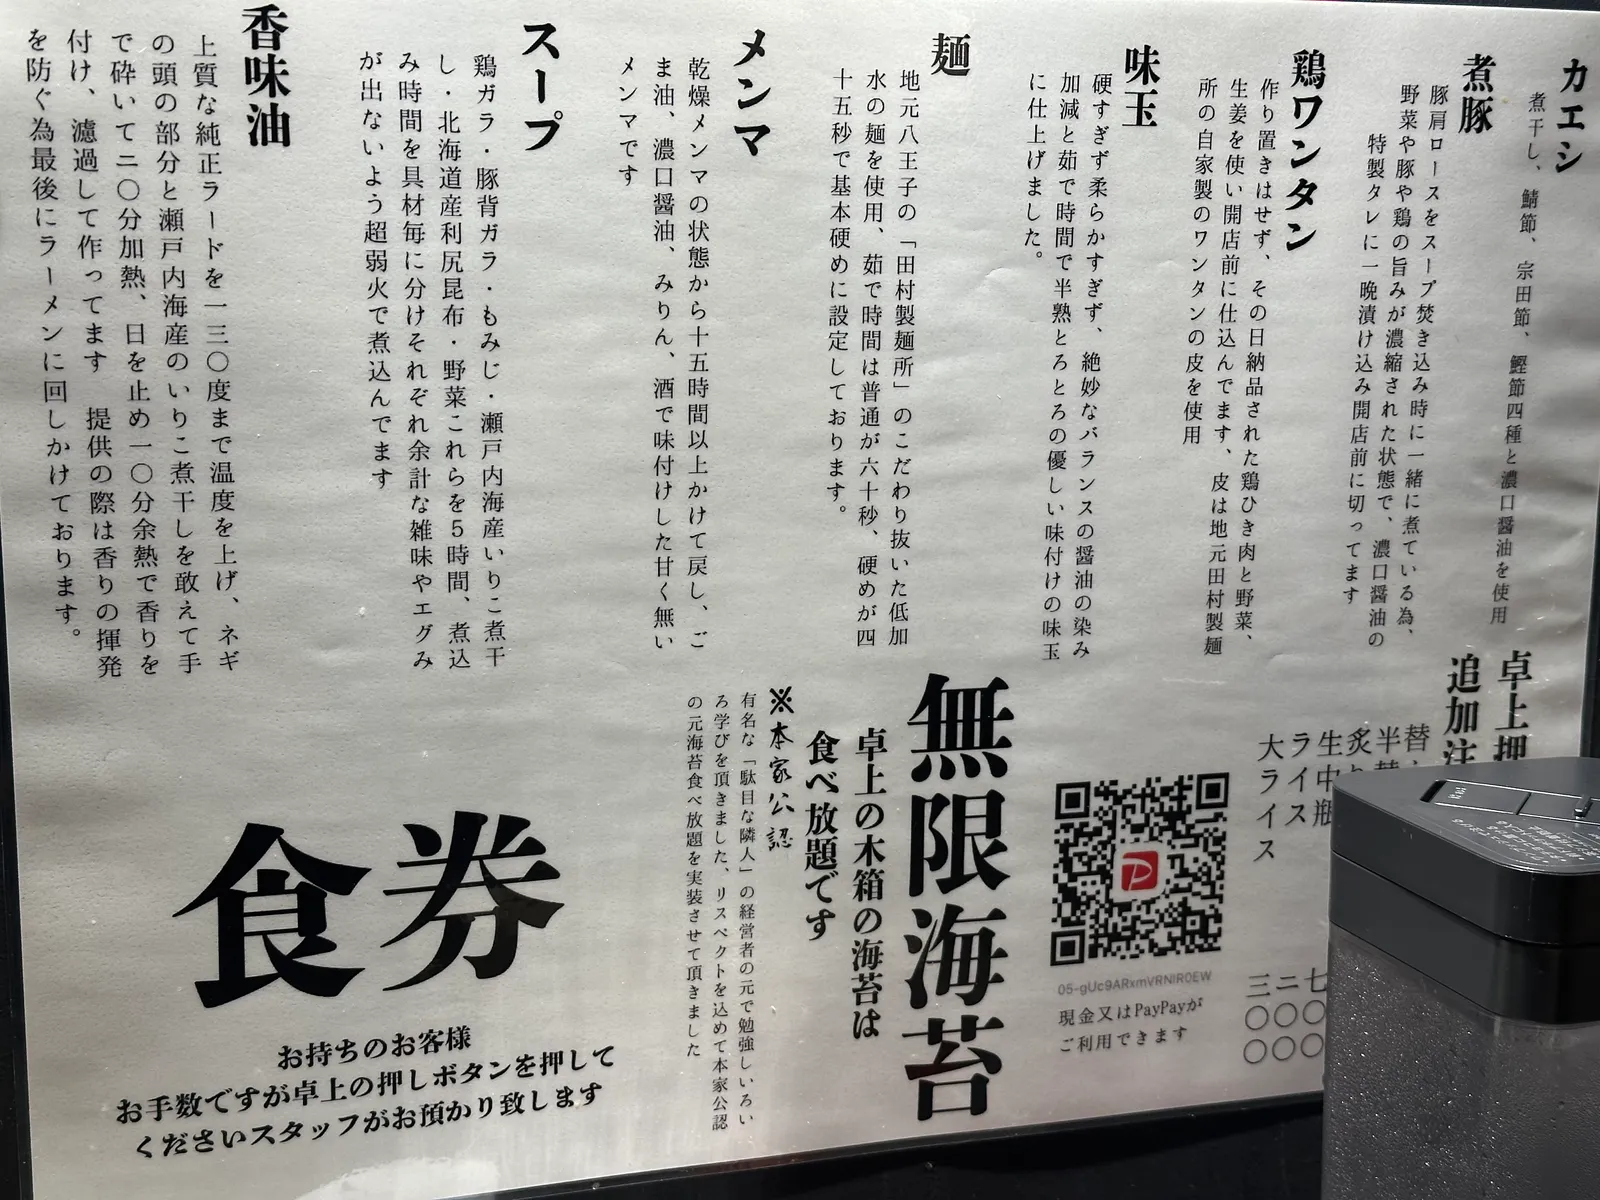 カエシ
煮干し、鯖節、宗田節、鰹節四種と濃口醤油を使用
煮豚
豚肩ロースをスープ焚き込み時に一緒に煮ている為、
野菜や豚や鶏の旨みが濃縮された状態で、濃口醤油の
特製タレに一晩漬け込み開店前に切ってます
鶏ワンタン
作り置きはせず、その日納品された鶏ひき肉と野菜、
生姜を使い開店前に仕込んでます、皮は地元田村製麺
所の自家製のワンタンの皮を使用
味玉
硬すぎず柔らかすぎず、絶妙なバランスの醤油の染み
加減と茹で時間で半熟とろとろの優しい味付けの味玉
に仕上げました。
麺
地元八王子の「田村製麺所」のこだわり抜いた低加
水の麺を使用、茹で時間は普通が六十秒、硬めが四
十五秒で基本硬めに設定しております。
メンマ
乾燥メンマの状態から十五時間以上かけて戻し、ご
ま油、濃口醤油、みりん、酒で味付けした甘く無い
メンマです
スープ
鶏ガラ・豚背ガラ・もみじ・瀬戸内海産いりこ煮干
し・北海道産利尻昆布・野菜これらを5時間、煮込
み時間を具材毎に分けそれぞれ余計な雑味やエグみ
が出ないよう超弱火で煮込んでます
香味油
上質な純正ラードを一三〇度まで温度を上げ、ネギ
の頭の部分と瀬戸内海産のいりこ煮干しを敢えて手
で砕いて二〇分加熱、日を止め一〇分余熱で香りを
付け、濾過して作ってます　提供の際は香りの揮発
を防ぐ為最後にラーメンに回しかけております。
卓上押
追加注
替
半替
炙り
生中瓶
ライス
大ライス
七〇〇
二〇〇
三〇〇
05-gUc9ARxmVRNIR0EW
現金又はPayPayが
ご利用できます
無限海苔
卓上の木箱の海苔は
食べ放題です
※本家公認
有名な「駄目な隣人」の経営者の元で勉強しいろい
ろ学びを頂きました、リスペクトを込めて本家公認
の元海苔食べ放題を実装させて頂きました
食券
お持ちのお客様
お手数ですが卓上の押しボタンを押して
くださいスタッフがお預かり致します